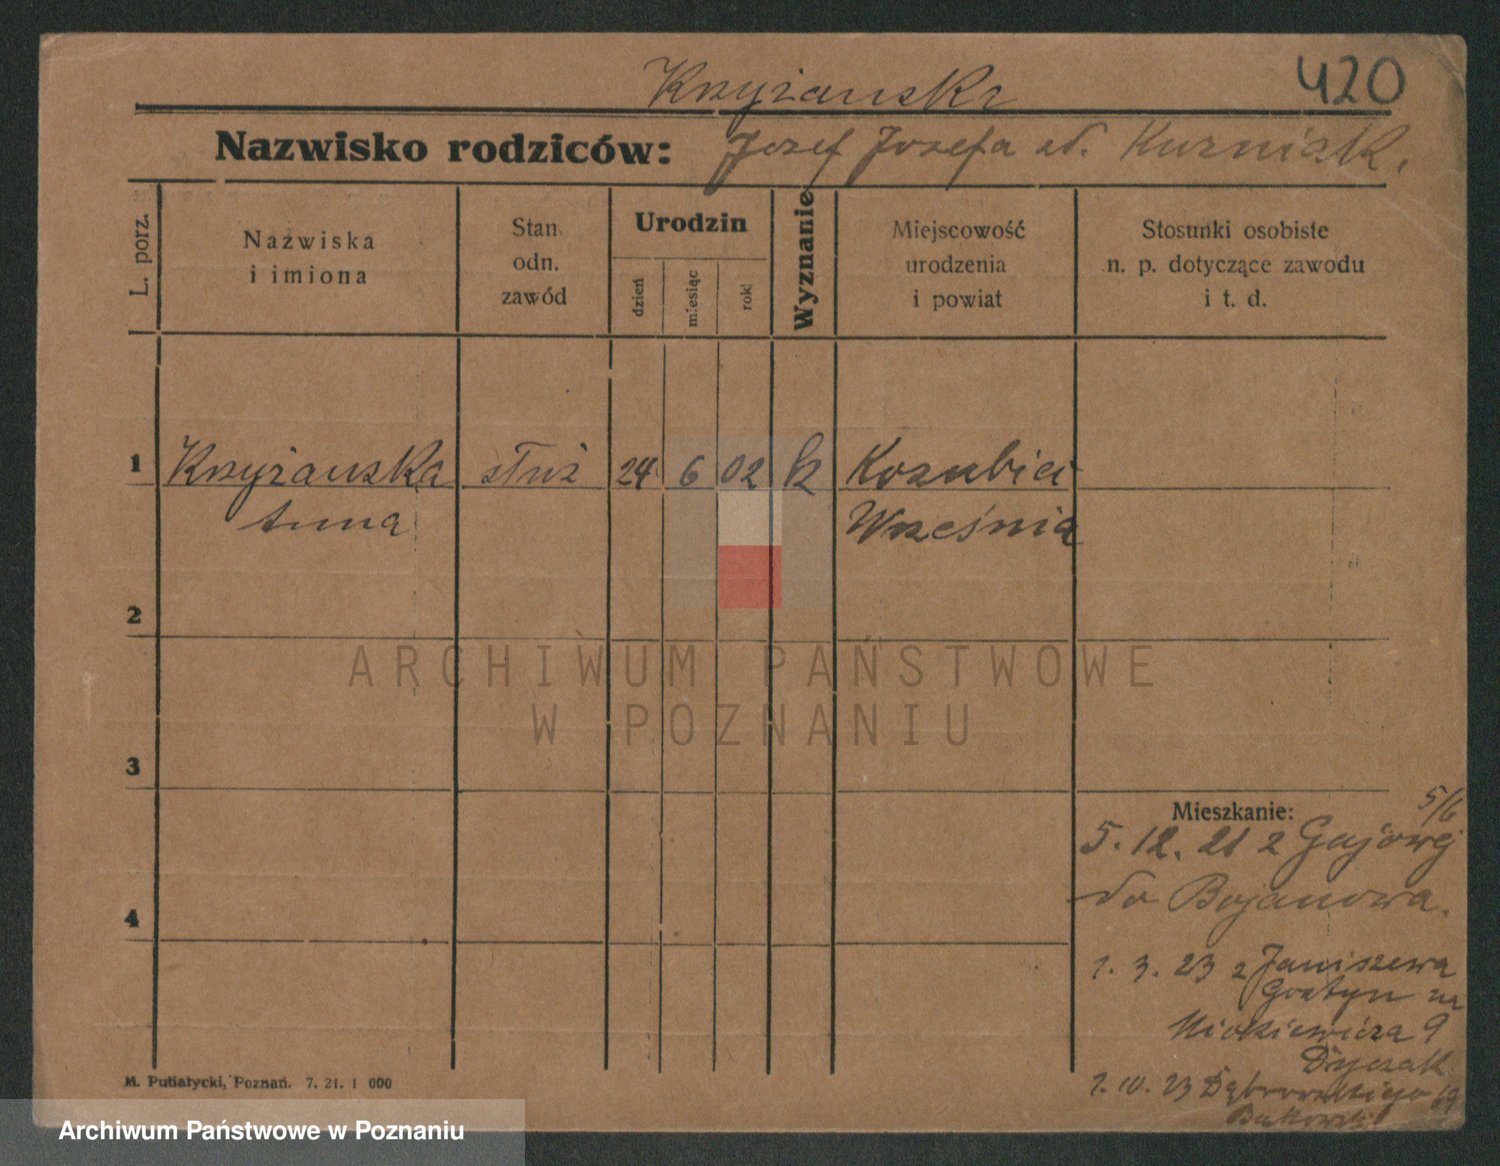 420
Krzyżanska
Nazwisko rodziców: Jozef Jozefa zd. Kuzniak.
L. porz.
Nazwiska
i imiona
Stan
odn.
zawód
Urodzin
dzień
miesiąc
rok
Wyznanie
Miejscowość
urodzenia
i powiat
Stosunki osobiste
n. p. dotyczące zawodu
i t. d.
1 Krzyżanska służ 24 6 02 k
Anna Września
2
ARCHIWUM PAŃSTWOWE
W POZNANIU
3
Mieszkanie: 5/6
5. 12. 21 z Gajowej
do Bojanowa.
4
1. 3. 23 z Janiszewa
Gostyn na
Mickiewicza 9
1. 10. 23 Dąbrowskiego 69
M. Putiatycki, Poznań. 7. 21. 1 000
Archiwum Państwowe w Poznaniu